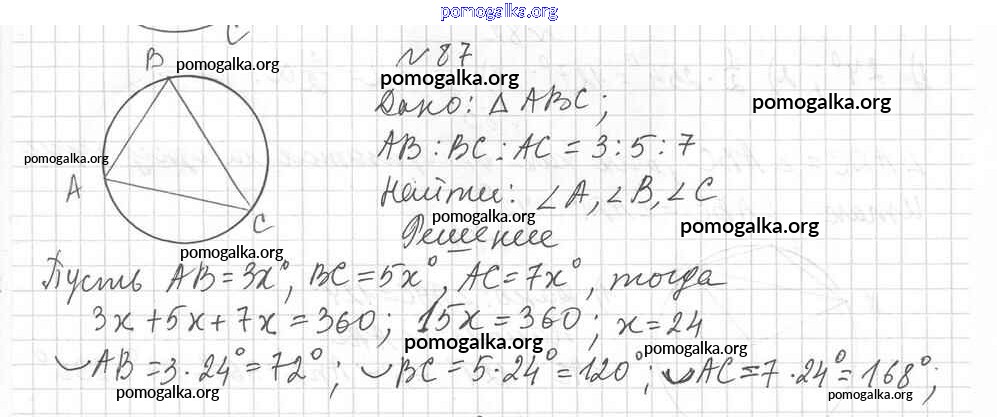 pomogalka.org
N 87
B pomogalka.org
pomogalka.org
Дано: △ ABC;
pomogalka.org
AB : BC : AC = 3 : 5 : 7
pomogalka.org
A
Найти: ∠A, ∠B, ∠C
pomogalka.org
C
pomogalka.org
Решение
pomogalka.org
Пусть AB = 3x°, BC = 5x°, AC = 7x°, тогда
3x + 5x + 7x = 360; 15x = 360; x = 24
pomogalka.org
pomogalka.org
◡AB = 3 · 24° = 72°; ◡BC = 5 · 24° = 120°; ◡AC = 7 · 24° = 168°;
pomogalka.org
pomogalka.org